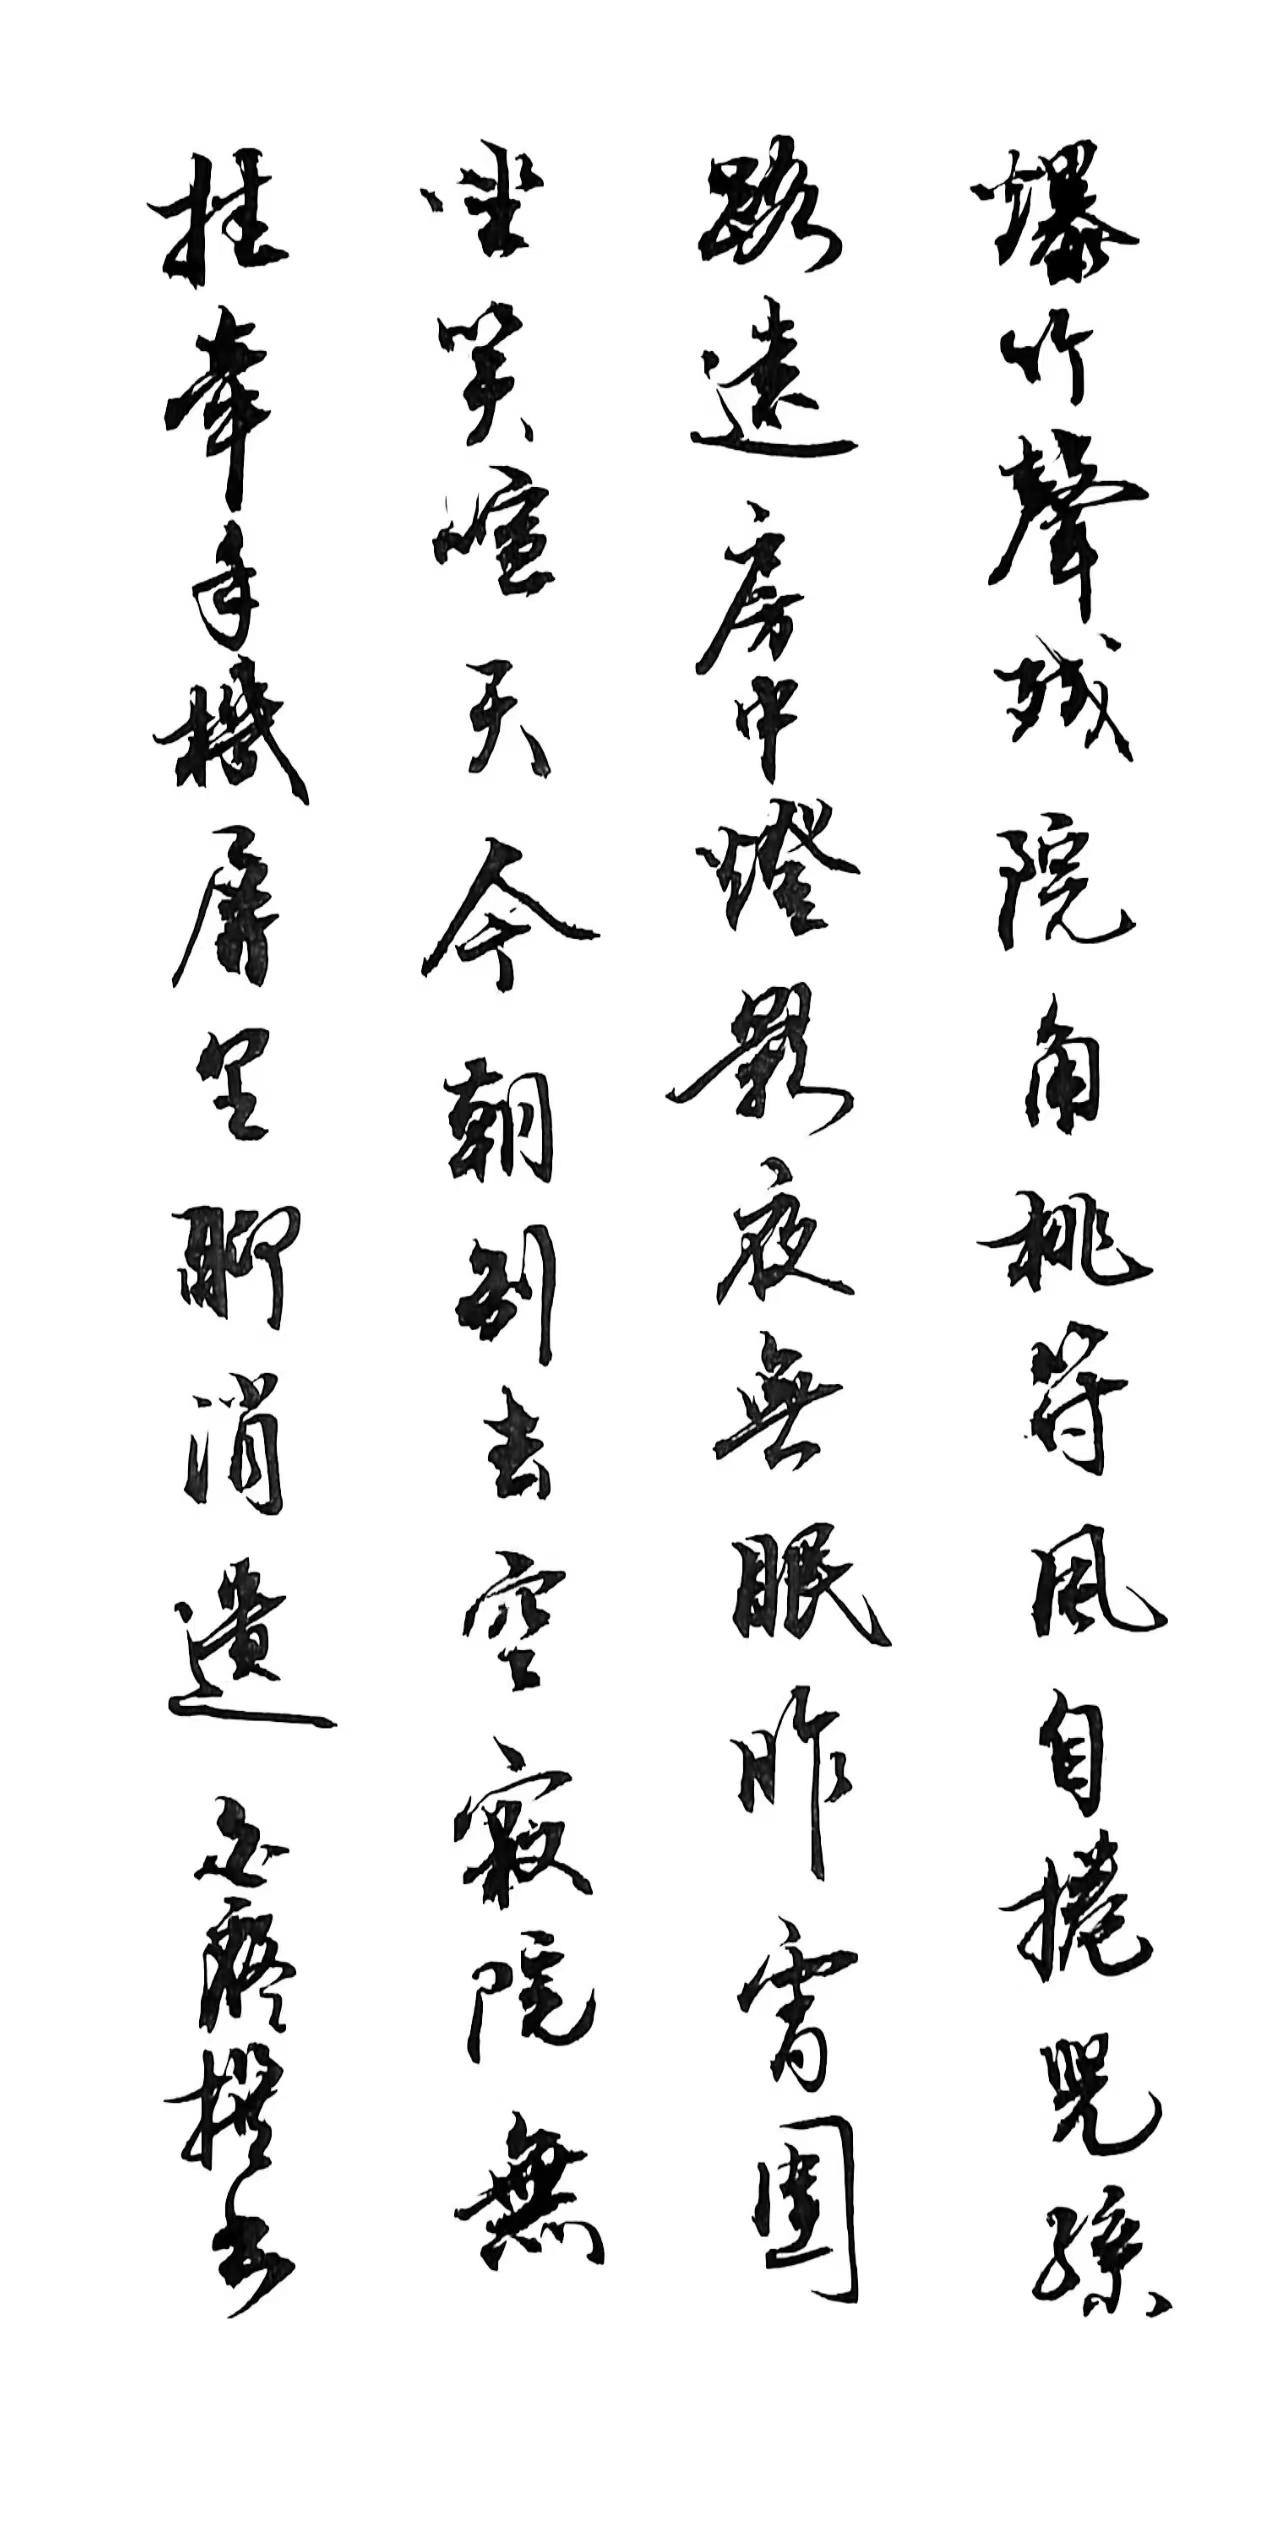 爆竹聲残院角桃符風自捲兒孫
路遠房中燈影夜無眠昨宵圍
坐笑喧天今朝別去空寂院無
挂牽手機屏里聊消遣撰书